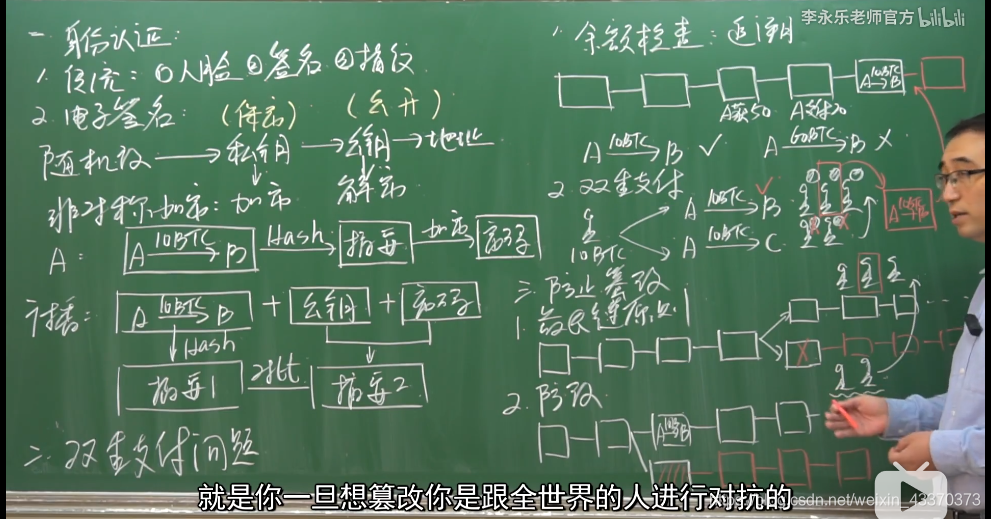 一、身份认证:
1. 传统: ①人脸 ②签名 ③指纹
2. 电子签名: (保密) (公开)
随机数 → 私钥 → 公钥 → 地址
非对称加密: 加密 解密
A: A 10BTC→ B Hash→ 摘要 加密→ 密码
广播: A 10BTC→ B + 公钥 + 密码
↓Hash ↓
摘要1 对比 摘要2
二、双重支付问题
1、余额检查: 追溯
A 10BTC→ B
A获50 A支付20
A 10BTC→ B ✓ A 60BTC→ B ×
2. 双重支付
A 10BTC→ B ✓
10BTC
A 10BTC→ C
A 10BTC→B
三、防止篡改
1. 最长链原则
×
2. 防改
A 10B→B
李永乐老师官方 bilibili
就是你一旦想篡改你是跟全世界的人进行对抗的
csdn.net/weixin_43370373